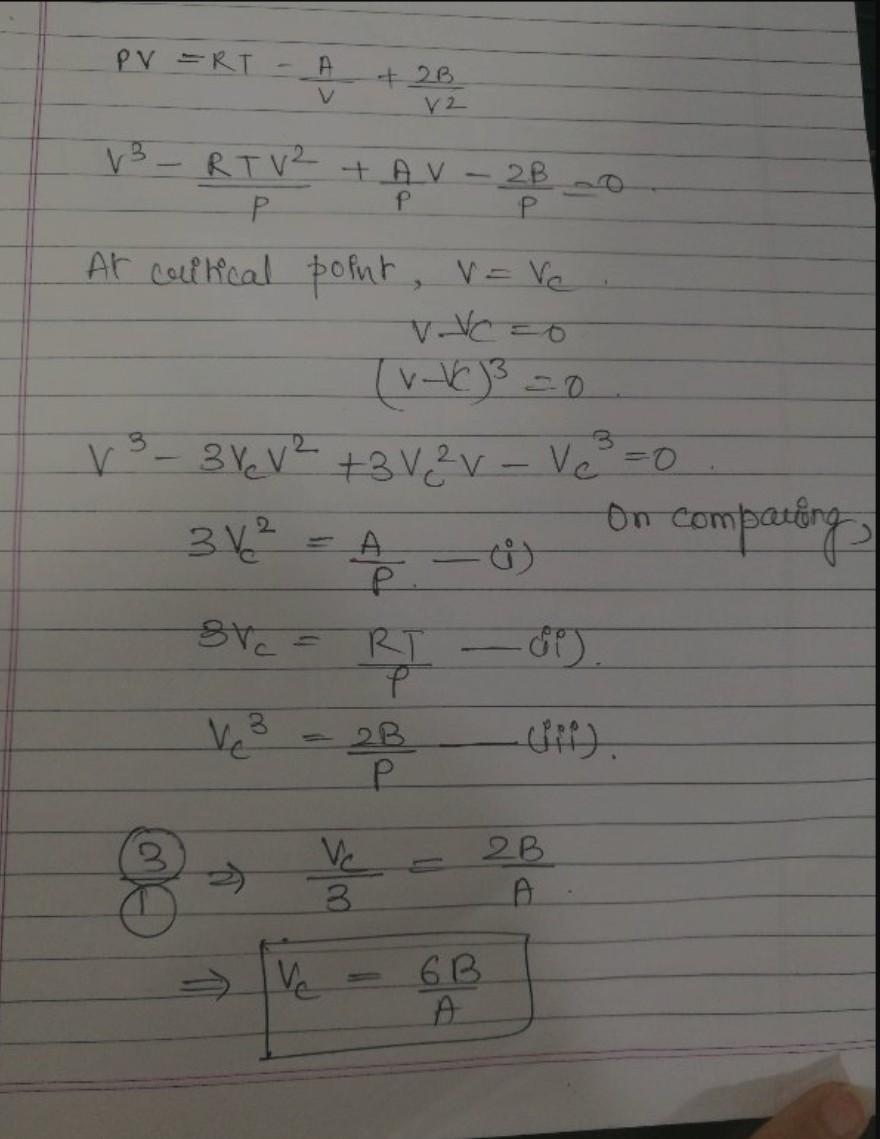 PV = RT - A/V + 2B/V2
V³ - RTV²/P + A/P V - 2B/P = 0.
At critical point, V = Vc.
V-Vc = 0
(V-Vc)³ = 0.
V³ - 3VcV² + 3Vc²V - Vc³ = 0.
On comparing,
3Vc² = A/P. — (i)
3Vc = RT/P — (ii).
Vc³ = 2B/P — (iii).
3/1 ⇒ Vc/3 = 2B/A.
⇒ Vc = 6B/A